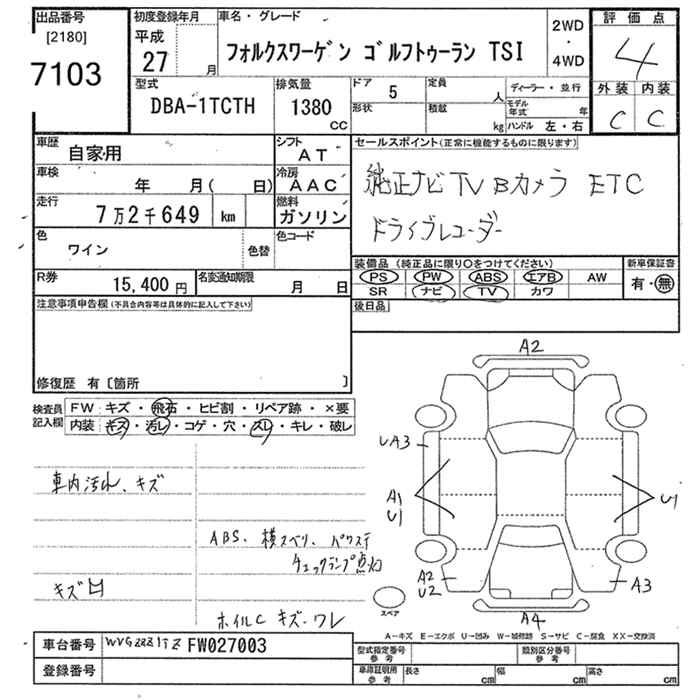 出品番号 初度登録年月 車名・グレード 2WD ・ 4WD 評価点
[2180] 平成
7103 27 月 フォルクスワーゲン ゴルフトゥーラン TSI 4
型式 排気量 ドア 5 定員 人 ディーラー・並行 外装 内装
DBA-1TCTH 1380 CC 形状 積載 kg モデル年式 年 C C
ハンドル 左・右
車歴 自家用 シフト AT セールスポイント(正常に機能するものに限ります)
車検 年 月( 日) 冷房 AAC 純正ナビ TV Bカメラ ETC
走行 7万2千649 km 燃料 ガソリン ドライブレコーダー
色 ワイン 色替 色コード
装備品(純正品に限り○をつけてください) 新車保証書
R券 15,400円 名変通知期限 月 日 PS PW ABS エアB AW 有・無
SR ナビ TV カワ
注意事項申告欄(不具合内容等は具体的に記入して下さい) 後日品
修復歴 有〔箇所 〕
検査員記入欄 FW キズ・飛石・ヒビ割・リペア跡・×要
内装 キズ・汚レ・コゲ・穴・スレ・キレ・破レ
A2
UA3
車内汚れ、キズ
A1 U1
U1
ABS、横スベリ、パワステ
チェックランプ点灯
キズ
A2 U2
A3
スペア
ホイルC キズ・ワレ
A4
A-キズ E-エクボ U-凹み W-補修跡 S-サビ C-腐食 XX-交換済
車台番号 WVGZZZ1TZ FW027003 型式指定番号 参考 類別区分番号 参考
登録番号 車庫証明用 参考 長さ cm 幅 cm 高さ cm